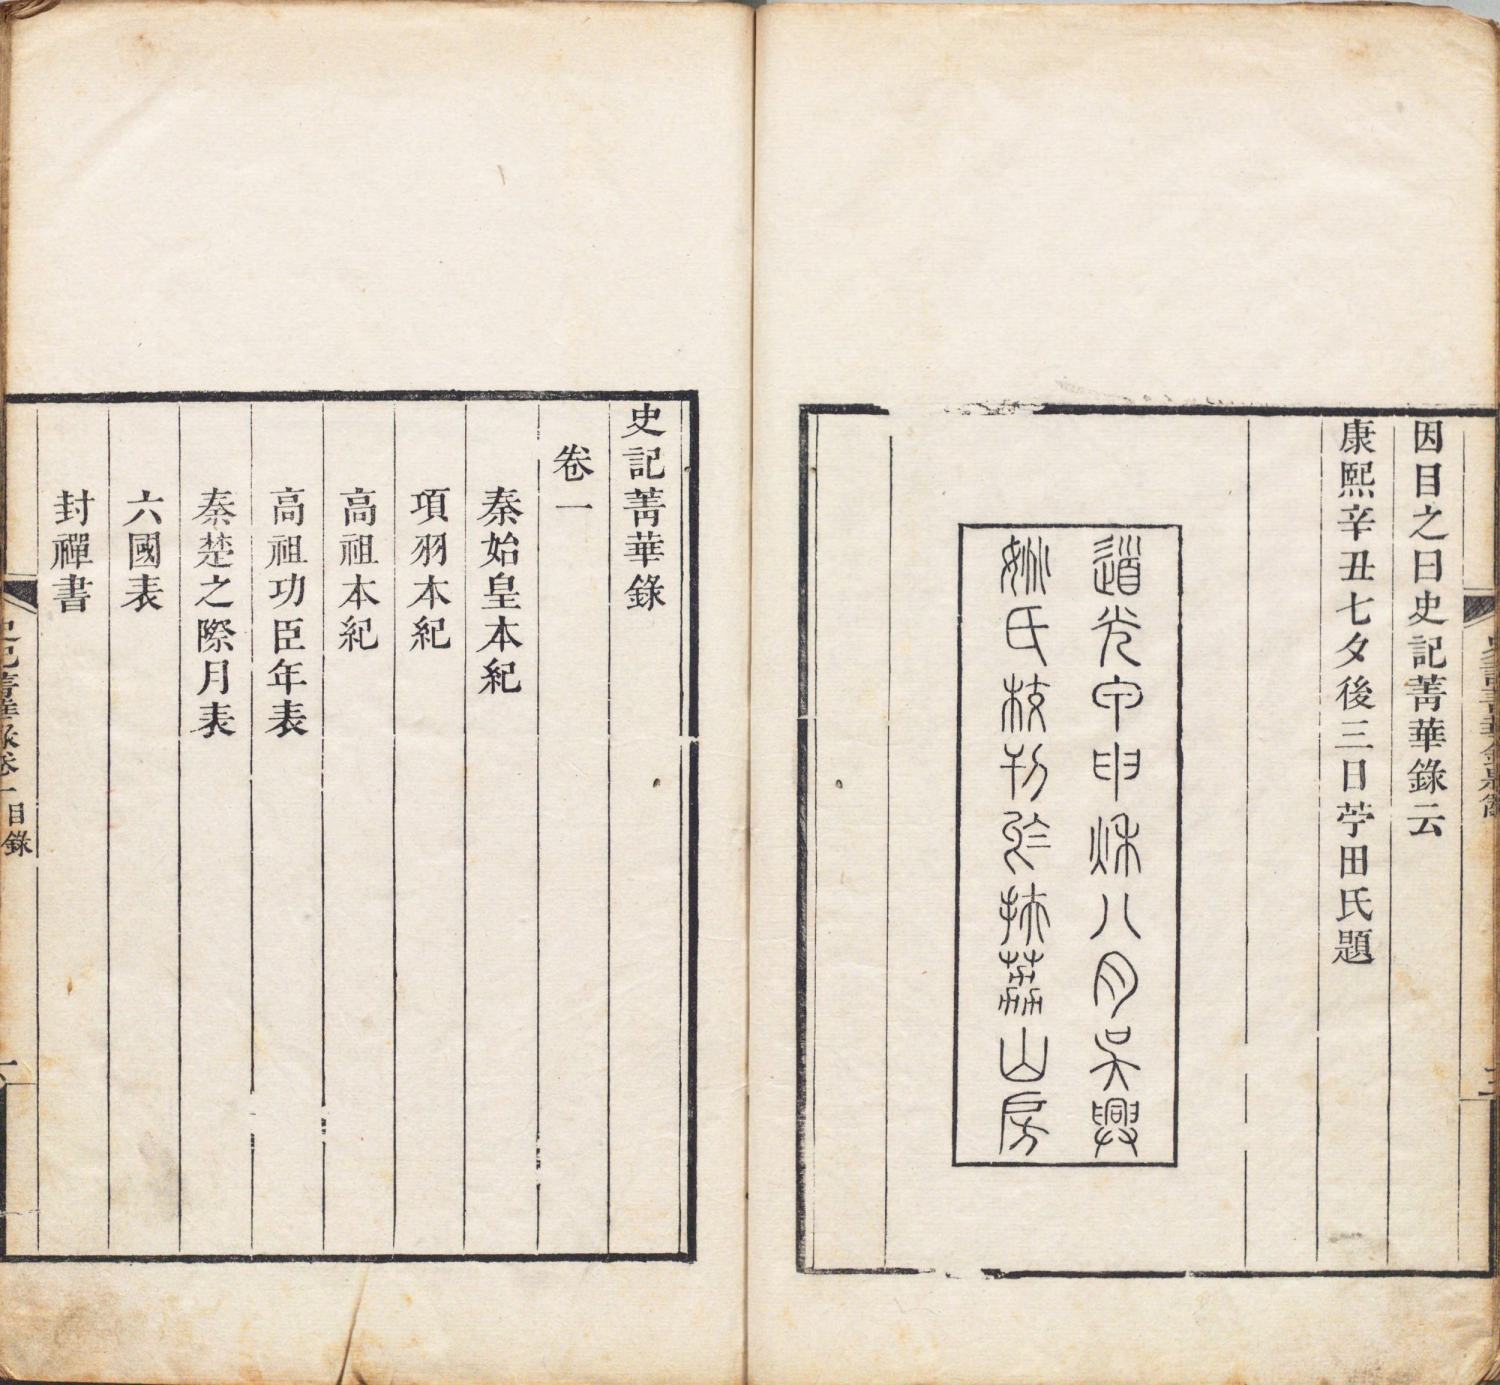 因目之曰史記菁華錄云
康熙辛丑七夕後三日苧田氏題
道光甲申秌八月吳興
姚氏校刊於扶荔山房
史記菁華錄
卷一
秦始皇本紀
項羽本紀
高祖本紀
高祖功臣年表
秦楚之際月表
六國表
封禪書
史記菁華錄卷一目錄